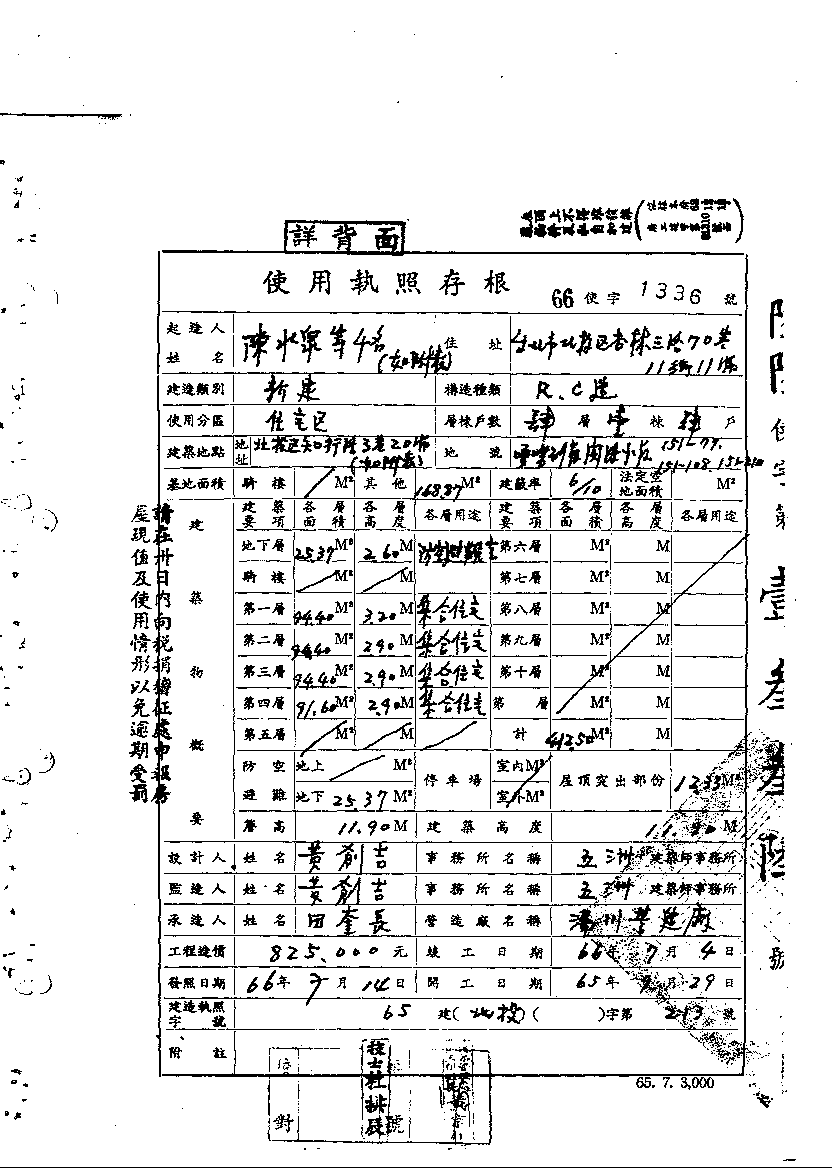 詳背面
使用執照存根
66 使字 1336 號
起造人姓名 陳水泉等4名(如附表) 住址 台北市北投區杏林三路70巷11弄11號
建造類別 新建 構造種類 R.C造
使用分區 住宅區 層棟戶數 肆層壹棟肆戶
建築地點 地址 北投區知行路3巷20號(如附表) 地號 151-77. 151-108. 151-210
基地面積 騎樓 / M² 其他 168.87 M² 建蔽率 6/10 法定空地面積 M²
建築物概要
建築要項 各層面積 各層高度 各層用途 建築要項 各層面積 各層高度 各層用途
地下層 25.37 M² 2.60 M 防空避難室 第六層 M² M
騎樓 / M² / M 第七層 M² M
第一層 94.40 M² 3.20 M 集合住宅 第八層 M² M
第二層 94.40 M² 2.90 M 集合住宅 第九層 M² M
第三層 94.40 M² 2.90 M 集合住宅 第十層 M² M
第四層 91.60 M² 2.90 M 集合住宅 第 層 M² M
第五層 / M² / M / 計 412.50 M²
防空避難 地上 / M² 停車場 室內 M² 屋頂突出部份 12.33 M²
地下 25.37 室外 M²
簷高 11.90 M 建築高度 11.90 M
設計人 姓名 黃創吉 事務所名稱 五洲 建築師事務所
監造人 姓名 黃創吉 事務所名稱 五洲 建築師事務所
承造人 姓名 田奎長 營造廠名稱 營造廠
工程造價 825,000 元 竣工日期 66年 7月 4日
發照日期 66年 7月 14日 開工日期 65年 9月 29日
建造執照字號 65 建(北投)( )字第 213 號
附註
65. 7. 3,000
請在卅日內向稅捐稽征處申報房
屋現值及使用情形以免逾期受罰
使字第 壹叁叁陸 號
對
號